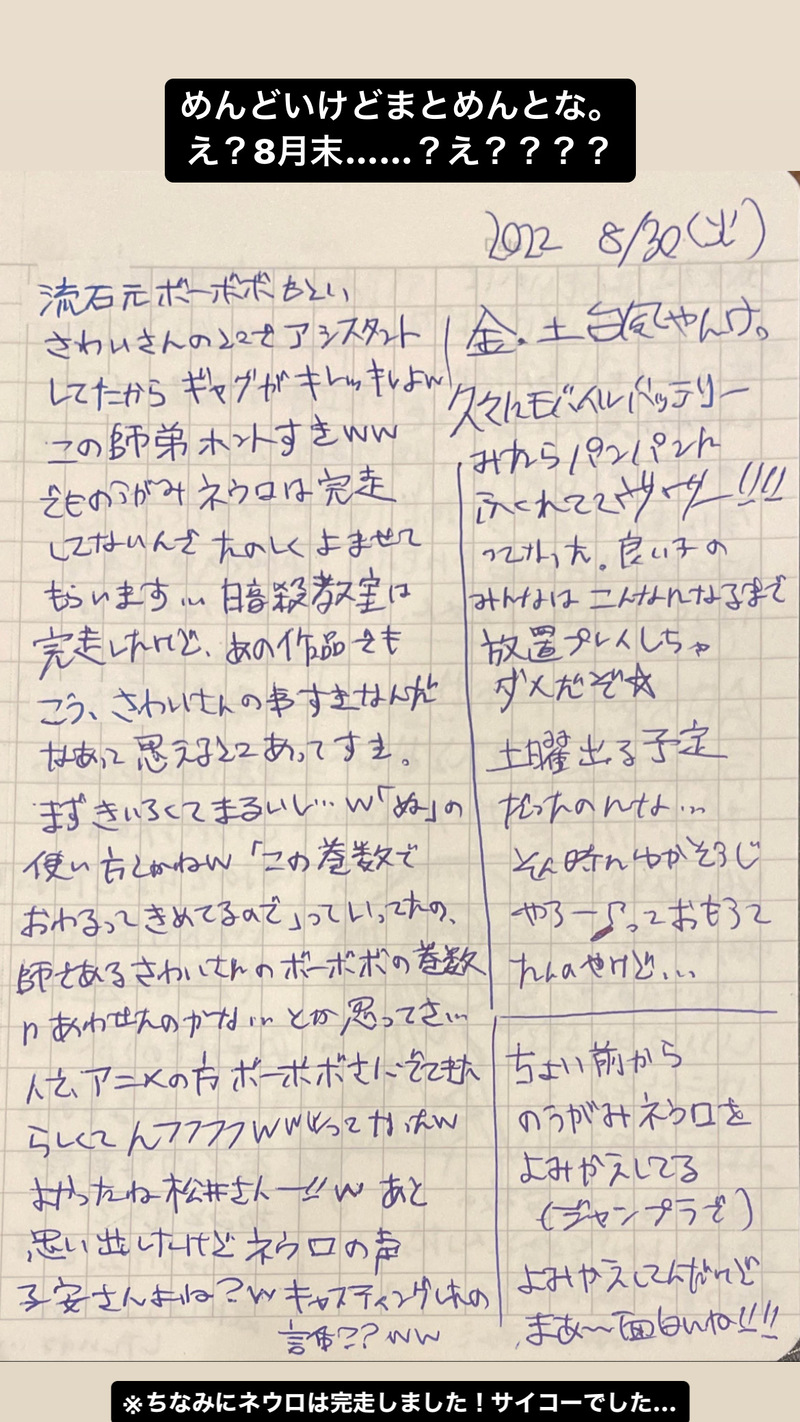 めんどいけどまとめんとな。
え？8月末……？え？？？？
2022 8/30(火)
金・土台風やんけ。
久々にモバイルバッテリー
みたらパンパンに
ふくれててヴヴヴー!!!!
ってなった。良い子の
みんなはこんなんなるまで
放置プレイしちゃ
ダメだぞ☆
土曜出る予定
だったのんな…
そん時にゆかそうじ
やろー♪っておもうて
たんやけど…
ちょい前から
のうがみネウロを
よみかえしてる
(ジャンプラで)
よみかえしてんだけど
まあ〜面白いね!!!
流石元ボーボボもとい
さわいさんのとこでアシスタント
してたからギャグがキレッキレよw
この師弟ホントすきww
でものうがみネウロは完走
してないんでたのしくよませて
もらいます… 暗殺教室は
完走したけど、あの作品でも
こう、さわいさんの事すきなんだ
なあって思えるとこあってすき。
まずきいろくてまるいし…w「ぬ」の
使い方とかねw「この巻数で
おわるってきめてるので」っていってたの、
師であるさわいさんのボーボボの巻数
にあわせたのかな… とか思ってさ…
んで、アニメの方ボーボボさんでてきた
らしくてんフフフフwwwってなったw
よかったね松井さんー!!w あと
思い出したけどネウロの声
子安さんよね？w キャスティングしたの
誰??ww
※ちなみにネウロは完走しました！サイコーでした…